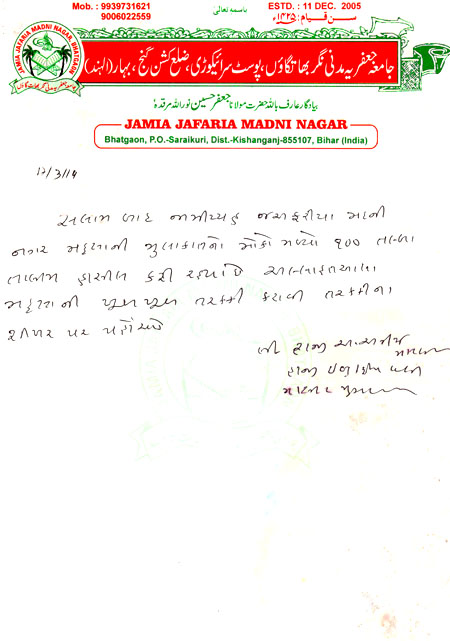 Mob. : 9939731621
9006022559
باسمہ تعالٰی
ESTD. : 11 DEC. 2005
سن قیام: ۱۴۲۵ھ
JAMIA JAFARIA MADNI NAGAR, BHATGAON
جامعہ جعفریہ مدنی نگر بھاٹگاؤں، پوسٹ سرائیکوڑی، ضلع کشن گنج، بہار (الہند)
بیادگار عارف باللہ حضرت مولانا جعفر حسین نور اللہ مرقدہٗ
JAMIA JAFARIA MADNI NAGAR
Bhatgaon, P.O.-Saraikuri, Dist.-Kishanganj-855107, Bihar (India)
12/3/14
સલામ બાદ જામીય્યહ જાફરીયા મદની
નગર મદ્રસાની મુલાકાતનો મોકો મળ્યો ૧૦૦ તલ્બા
તાલીમ હાસીલ કરી રહ્યા છે અલ્લાહ તઆલા
મદ્રસાની ખુબ ખુબ તરક્કી કરાવી તરક્કીના
શીખર પર પહોંચાડે
લી હાજી
હાજી